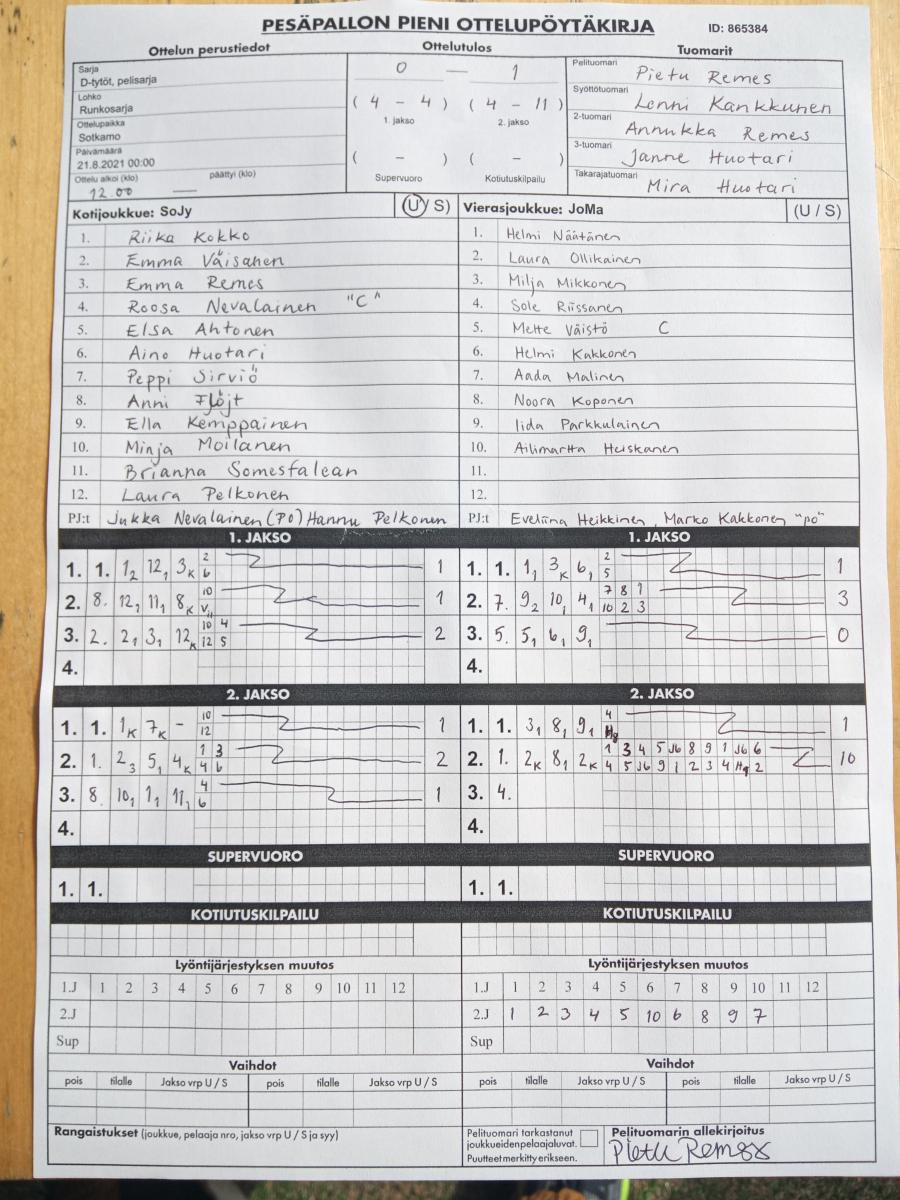 PESÄPALLON PIENI OTTELUPÖYTÄKIRJA ID: 865384
Ottelun perustiedot Ottelutulos Tuomarit
Sarja
D-tytöt, pelisarja
Lohko
Runkosarja
Ottelupaikka
Sotkamo
Päivämäärä
21.8.2021 00:00
Ottelu alkoi (klo) päättyi (klo)
12.00 —
0 — 1
( 4 - 4 ) ( 4 - 11 )
1. jakso 2. jakso
( - ) ( - )
Supervuoro Kotiutuskilpailu
Pelituomari Pietu Remes
Syöttötuomari Lenni Kankkunen
2-tuomari Annukka Remes
3-tuomari Janne Huotari
Takarajatuomari Mira Huotari
Kotijoukkue: SoJy (U / S)
1. Riika Kokko
2. Emma Väisänen
3. Emma Remes
4. Roosa Nevalainen "C"
5. Elsa Ahtonen
6. Aino Huotari
7. Peppi Sirviö
8. Anni Flöjt
9. Ella Kemppainen
10. Minja Moilanen
11. Brianna Somesfalean
12. Laura Pelkonen
PJ:t Jukka Nevalainen (PO) Hannu Pelkonen
Vierasjoukkue: JoMa (U / S)
1. Helmi Näätänen
2. Laura Ollikainen
3. Milja Mikkonen
4. Sole Riissanen
5. Mette Väistö C
6. Helmi Kakkonen
7. Aada Malinen
8. Noora Koponen
9. Iida Parkkulainen
10. Ailimartta Heiskanen
11.
12.
PJ:t Eveliina Heikkinen, Marko Kakkonen "po"
1. JAKSO
1. 1. 1₂ 12₁ 3K 2 6 1
2. 8. 12₁ 11₁ 8K 10 1
3. 2. 2₁ 3₁ 12K 10 4 12 5 2
4.
1. JAKSO
1. 1. 1₁ 3K 6₁ 2 5 1
2. 7. 9₂ 10₁ 4₁ 7 8 1 10 2 3 3
3. 5. 5₁ 6₁ 9₁ 0
4.
2. JAKSO
1. 1. 1K 7K - 10 12 1
2. 1. 2₃ 5₁ 4K 1 3 4 6 2
3. 8. 10₁ 1₁ 11₁ 4 6 1
4.
2. JAKSO
1. 1. 3₁ 8₁ 9₁ 4 1
2. 1. 2K 8₁ 2K 1 3 4 5 J6 8 9 1 J6 6 10
4 5 J6 9 1 2 3 4 Hq 2
3. 4.
4.
SUPERVUORO SUPERVUORO
1. 1. 1. 1.
KOTIUTUSKILPAILU KOTIUTUSKILPAILU
Lyöntijärjestyksen muutos Lyöntijärjestyksen muutos
1.J 1 2 3 4 5 6 7 8 9 10 11 12 1.J 1 2 3 4 5 6 7 8 9 10 11 12
2.J 2.J 1 2 3 4 5 10 6 8 9 7
Sup Sup
Vaihdot Vaihdot
pois tilalle Jakso vrp U / S pois tilalle Jakso vrp U / S pois tilalle Jakso vrp U / S pois tilalle Jakso vrp U / S
Rangaistukset (joukkue, pelaaja nro, jakso vrp U / S ja syy)
Pelituomari tarkastanut
joukkueidenpelaajaluvat.
Puutteet merkitty erikseen.
Pelituomarin allekirjoitus
Pietu Remes